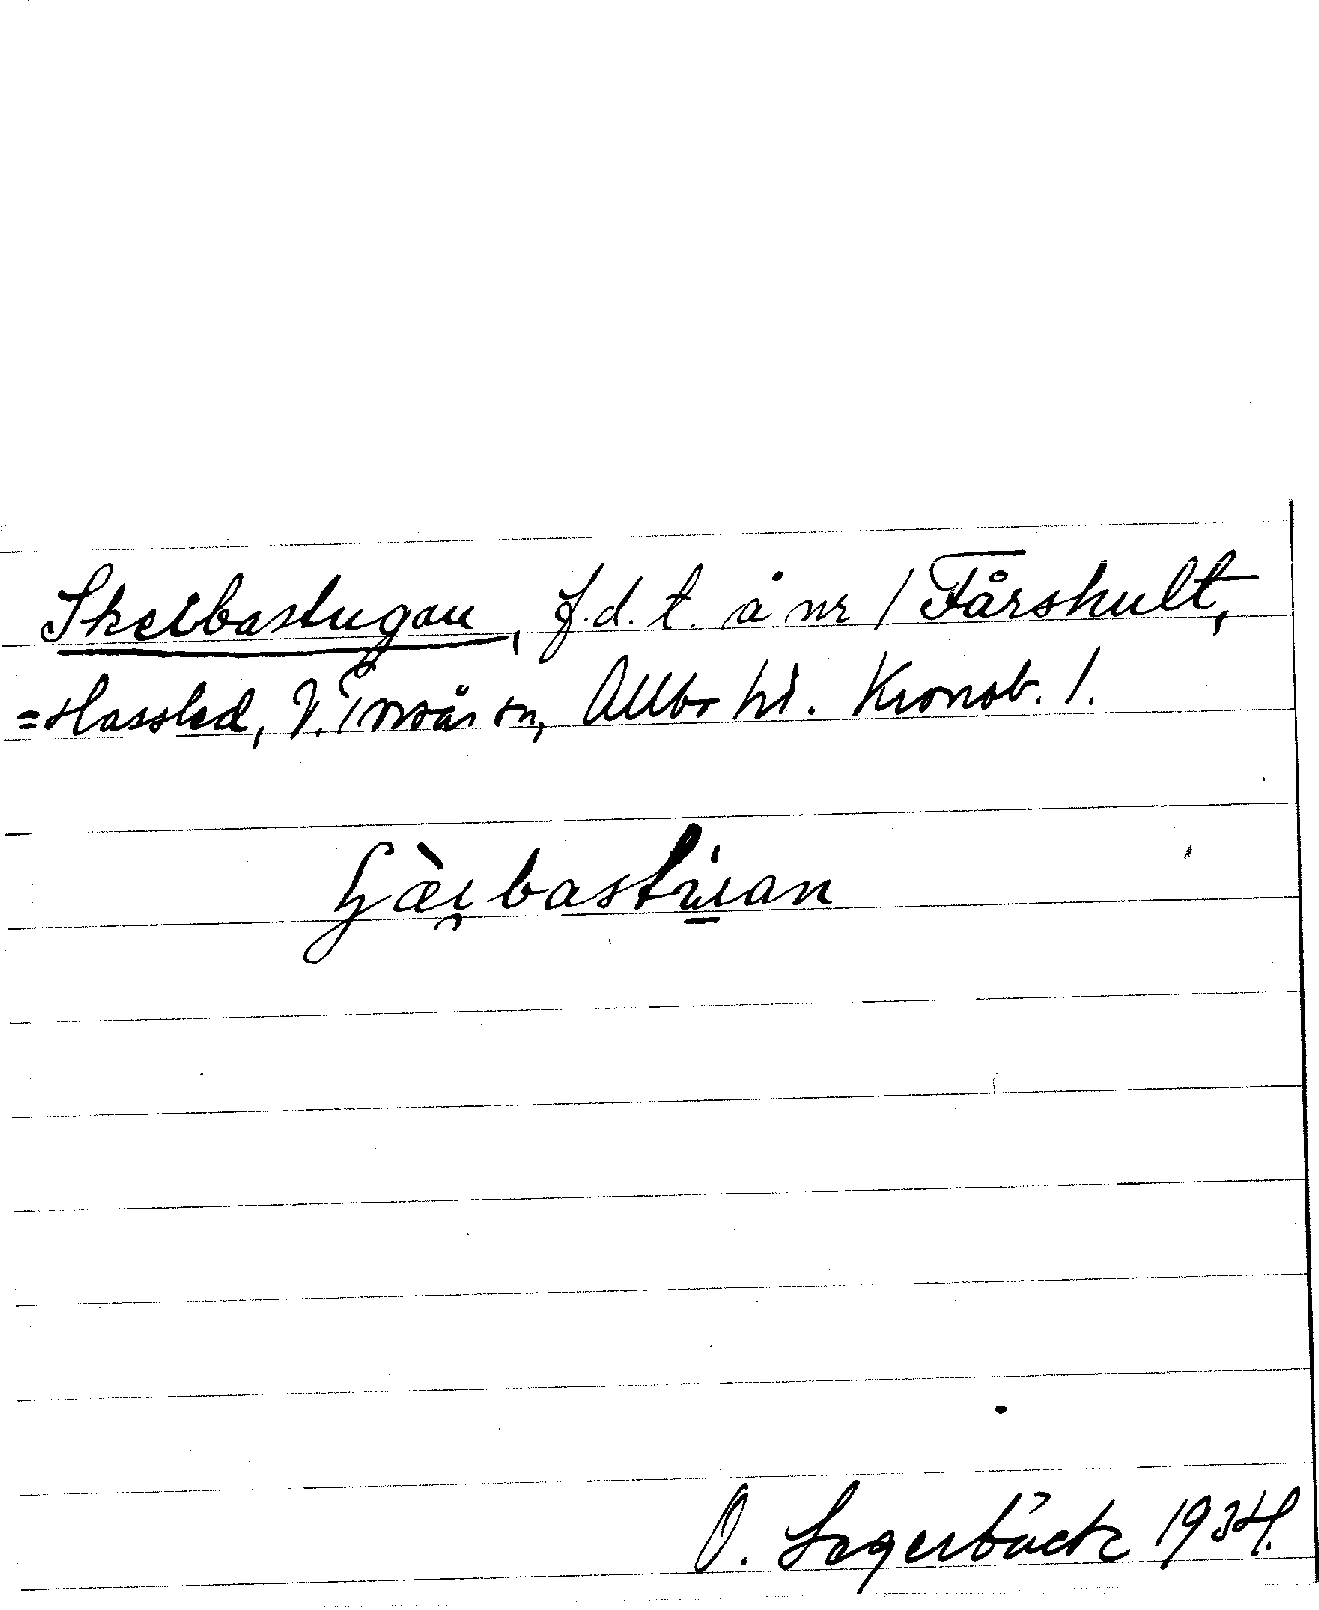 Skeibastugan, f.d. t. å nr 1 Fårshult,
= Hassled, V. Torsås sn, Allbo hd. Kronob. l.
O. Lagerbäck 1934.